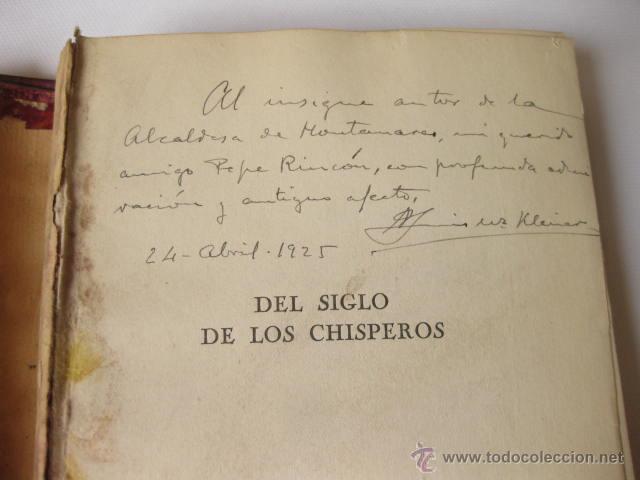 Al insigne autor de la
Alcaldesa de Hontanares, mi querido
amigo Pepe Rincón, con profunda admi
ración y antiguo afecto,
Kleiser
24-Abril-1925
DEL SIGLO
DE LOS CHISPEROS
todocoleccion
© www.todocoleccion.net